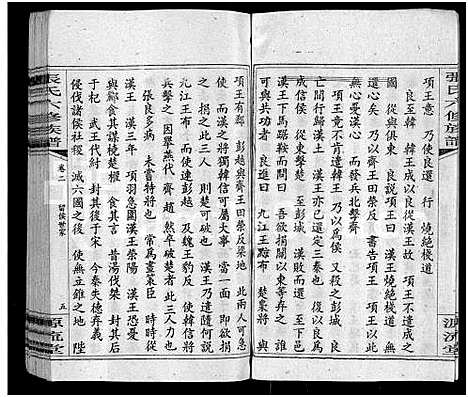 張氏六修族譜
項王意　乃使良還　行　燒絕棧道
良至韓　韓王成以良從漢王故　項王不遣成之
國　從與俱東　良說項王曰　漢王燒絕棧道　無
還心矣　乃以齊王田榮反書告項王　項王以此
無心憂漢心　而發兵北擊齊
項王竟不肯遣韓王　乃以為侯　又殺之彭城　良
亡間行歸漢王　漢王亦已還定三秦也　復以良為
成信侯　從東擊楚　至彭城　漢敗而還　至下邑
漢王下馬踞鞍而問曰　吾欲捐關以東等棄之　誰
可與共功者　良進曰　九江王黥布　楚梟將　與
項王有郄　彭越與齊王田榮反梁地　此兩人可急
使　而漢王之將獨韓信可屬大事　當一面　即欲捐
之　捐之此三人　則楚可破也　漢王乃遣隨何說
九江王布　而使人連彭越　及魏王豹反　使韓信將
兵擊之　因舉燕代　齊　趙　然卒破楚者　此三人力也
張良多病　未嘗特將也　常為畫策臣　時時從
漢王　漢三年　項羽急圍漢王滎陽　漢王恐憂
與酈食其謀橈楚權　食其言　昔湯伐桀　封其後
于杞　武王代紂　封其後于宋　今秦失德弃義
侵伐諸侯社稷　滅六國之後　使無立錐之地　陛
張氏六修族譜
卷二
留侯世家
五
源流堂